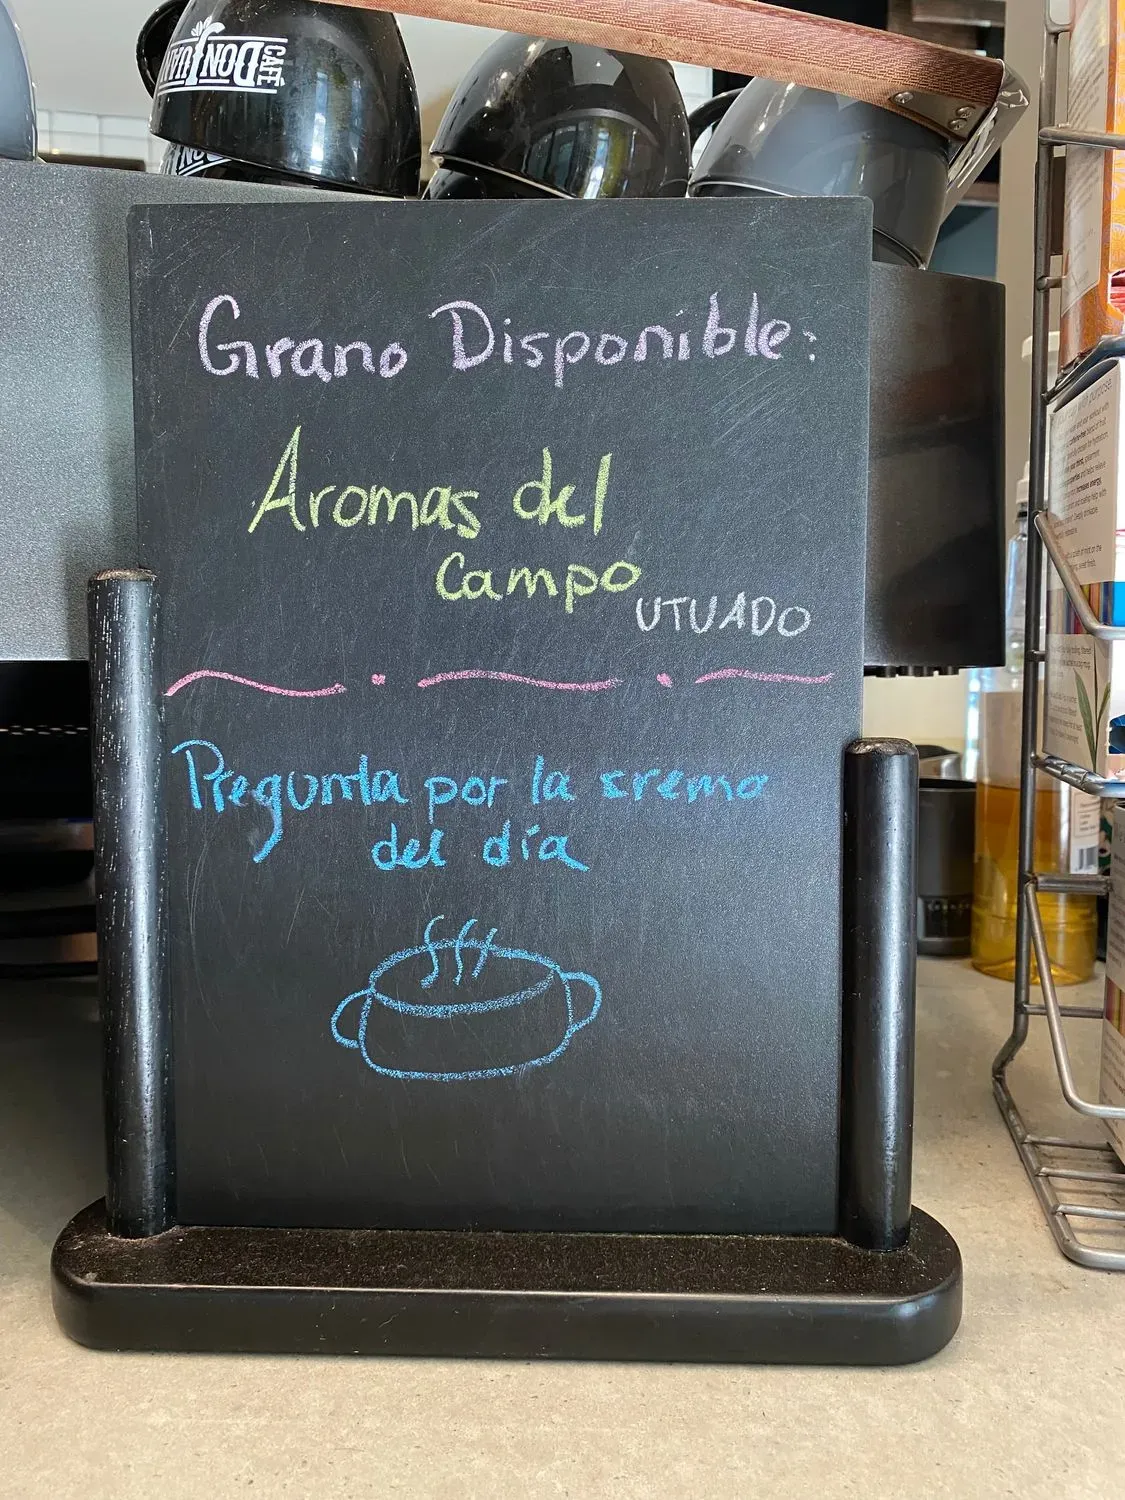 CAFÉ
DON JUAN
Grano Disponible:
Aromas del
Campo
UTUADO
Pregunta por la cremo
del día